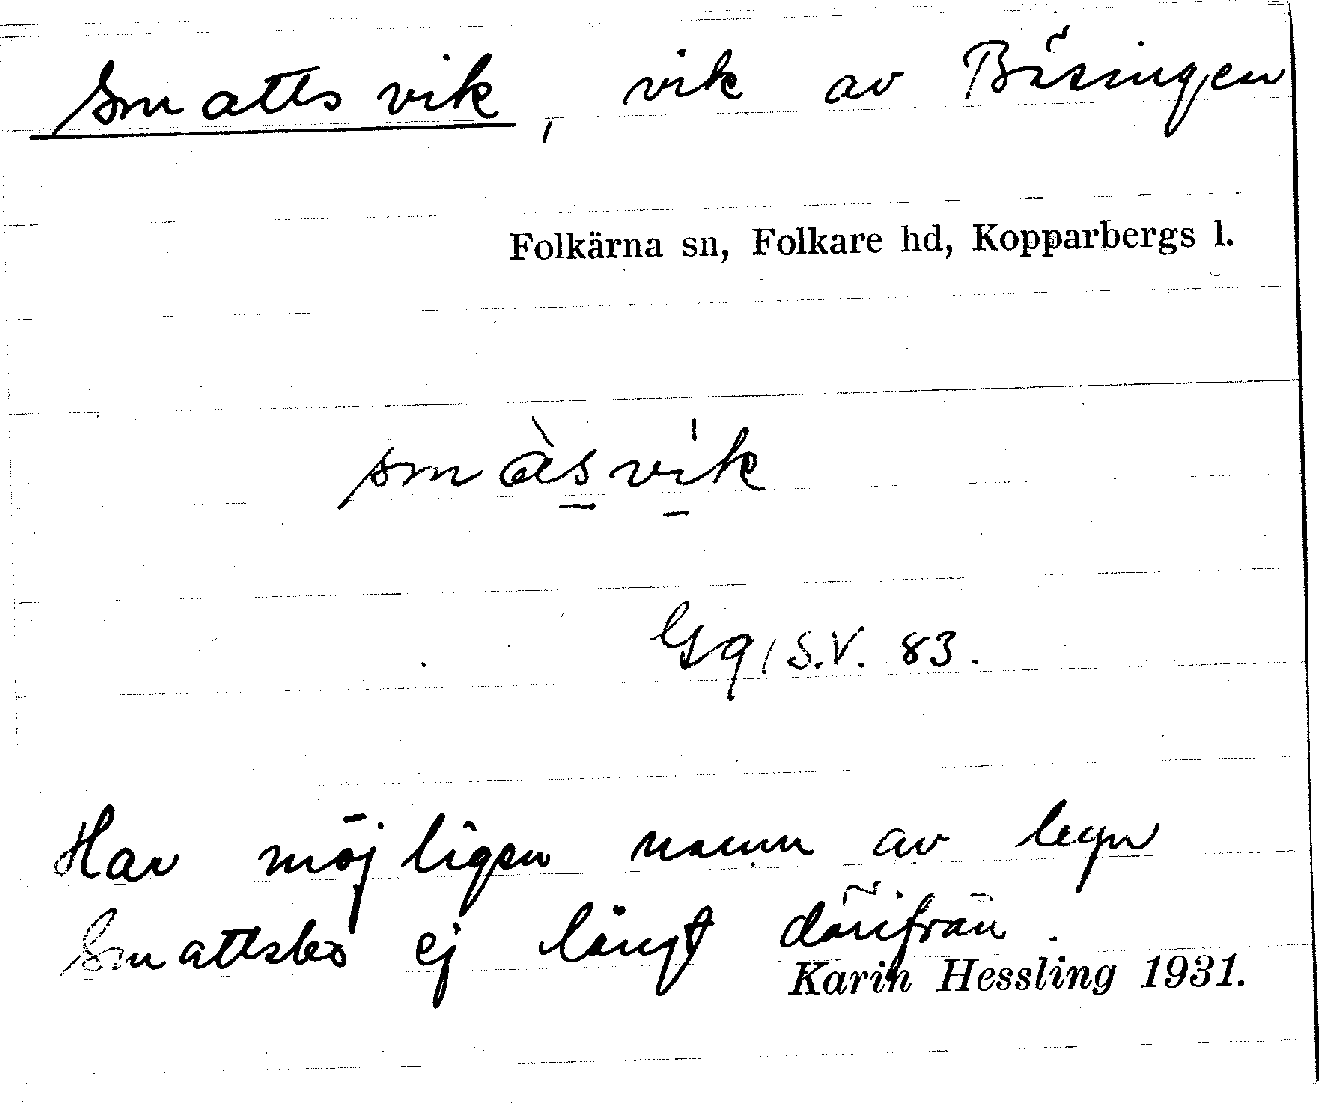 Smattsvik, vik av Bäsingen
Folkärna sn, Folkare hd, Kopparbergs l.
smàsvik
Gq, S.V. 83.
Har möjligen namn av byn
Smattsbo ej långt därifrån.
Karin Hessling 1931.